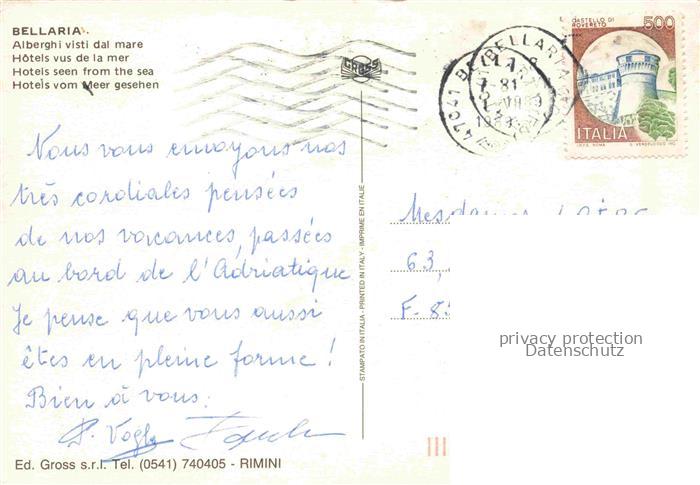 BELLARIA
Alberghi visti dal mare
Hôtels vus de la mer
Hotels seen from the sea
Hotels vom Meer gesehen
GROSS
CASTELLO DI
ROVERETO
500
ITALIA
I.P.Z.S. ROMA
47041 BELLARIA
Nous vous envoyons nos
très cordiales pensées
de nos vacances, passées
au bord de l'Adriatique
Je pense que vous aussi
êtes en pleine forme !
Bien à vous.
STAMPATO IN ITALIA - PRINTED IN ITALY - IMPRIME EN ITALIE
Mesdames
63,
F-8
privacy protection
Datenschutz
Ed. Gross s.r.l. Tel. (0541) 740405 - RIMINI